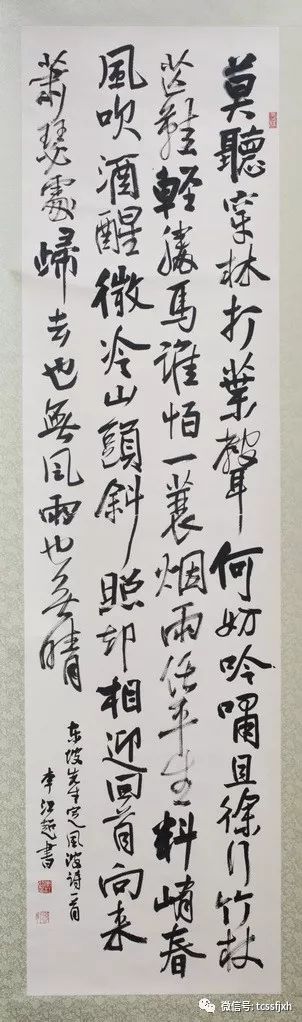 莫聽穿林打葉聲何妨吟嘯且徐行竹杖
芒鞋輕勝馬誰怕一蓑烟雨任平生料峭春
風吹酒醒微冷山頭斜照却相迎回首向来
蕭瑟處歸去也無風雨也無晴
东坡先生定風波詩一首
李書
微信号: tcssfjxh